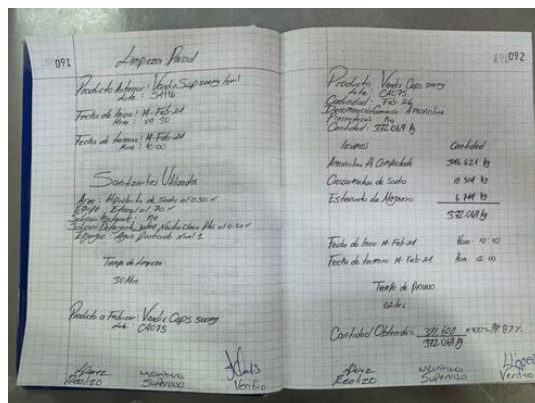 091
Limpieza Parcial
Producto Anterior: Vandix Susp 500mg/5ml
Lote: 
Fecha de Inicio: 14-Feb-24
Hora: 09:30
Fecha de termino: 14-Feb-24
Hora: 10:00
Sanitizantes Utilizados
Area: Hipoclorito de Sodio al 0.50%
Equipo: Etanol al 70%
Solución: NA
Solución Detergente: al 0.50%
Enjuague: Agua nivel 1
Tiempo de Limpieza
30 Min
Producto a Fabricar: Vandix Caps 500mg
Lote: CA075
Realizo Superviso Verifico
092
Producto: Vandix Caps 500mg
Lote: CA075
Caducidad: Feb-26
Denominación Generica: Amoxicilina
Presentación: NA
Cantidad: 372.069 kg
Insumos Cantidad
Amoxicilina Compactada 346.821 kg
Croscarmelosa de Sodio 18.504 kg
Estearato de Magnesio 6.744 kg
372.069 kg
Fecha de Inicio: 14-Feb-24 Hora: 10:10
Fecha de termino: 14-Feb-24 Hora: 12:10
Tiempo de Proceso
02 hrs
Cantidad Obtenida = x100 = 99.87%
372.069 kg
Realizo Superviso Verifico